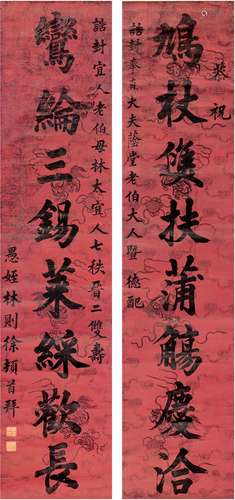 恭祝
誥封奉直大夫蓥堂老伯大人暨 德配
鳩杖雙扶蒲觴慶洽
誥封宜人老伯母林太宜人七秩晉二雙壽
鸞綸三錫萊綵歡長
愚姪林則徐頓首拜